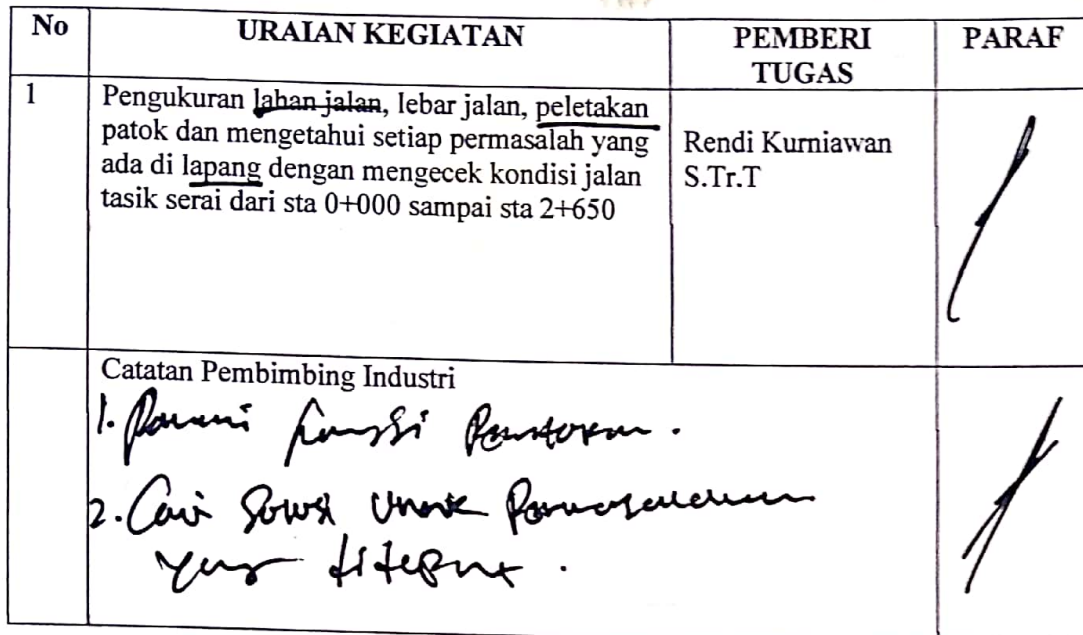 No URAIAN KEGIATAN PEMBERI TUGAS PARAF
1 Pengukuran lahan jalan, lebar jalan, peletakan
patok dan mengetahui setiap permasalah yang
ada di lapang dengan mengecek kondisi jalan
tasik serai dari sta 0+000 sampai sta 2+650
Rendi Kurniawan
S.Tr.T
Catatan Pembimbing Industri
1. Pahami fungsi
2. Cari Solusi Untuk Permasalahan
yang